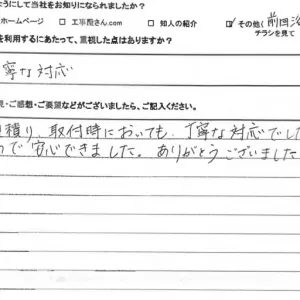 ようにして当社をお知りになられましたか？
ホームページ □ 工事店さん.com □ 知人の紹介 ☑ その他(前回
チラシを見て
を利用するにあたって、重視した点はありますか？
寧な対応
見・ご感想・ご要望などがございましたら、ご記入ください。
積り、取付時においても、丁寧な対応でした
で安心できました。ありがとうございました